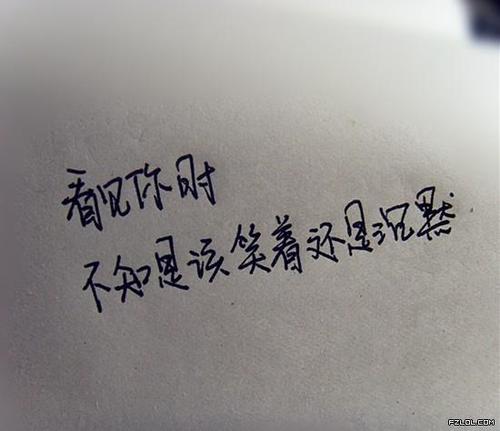 看见你时
不知是该笑着还是沉默
PZLOL.COM